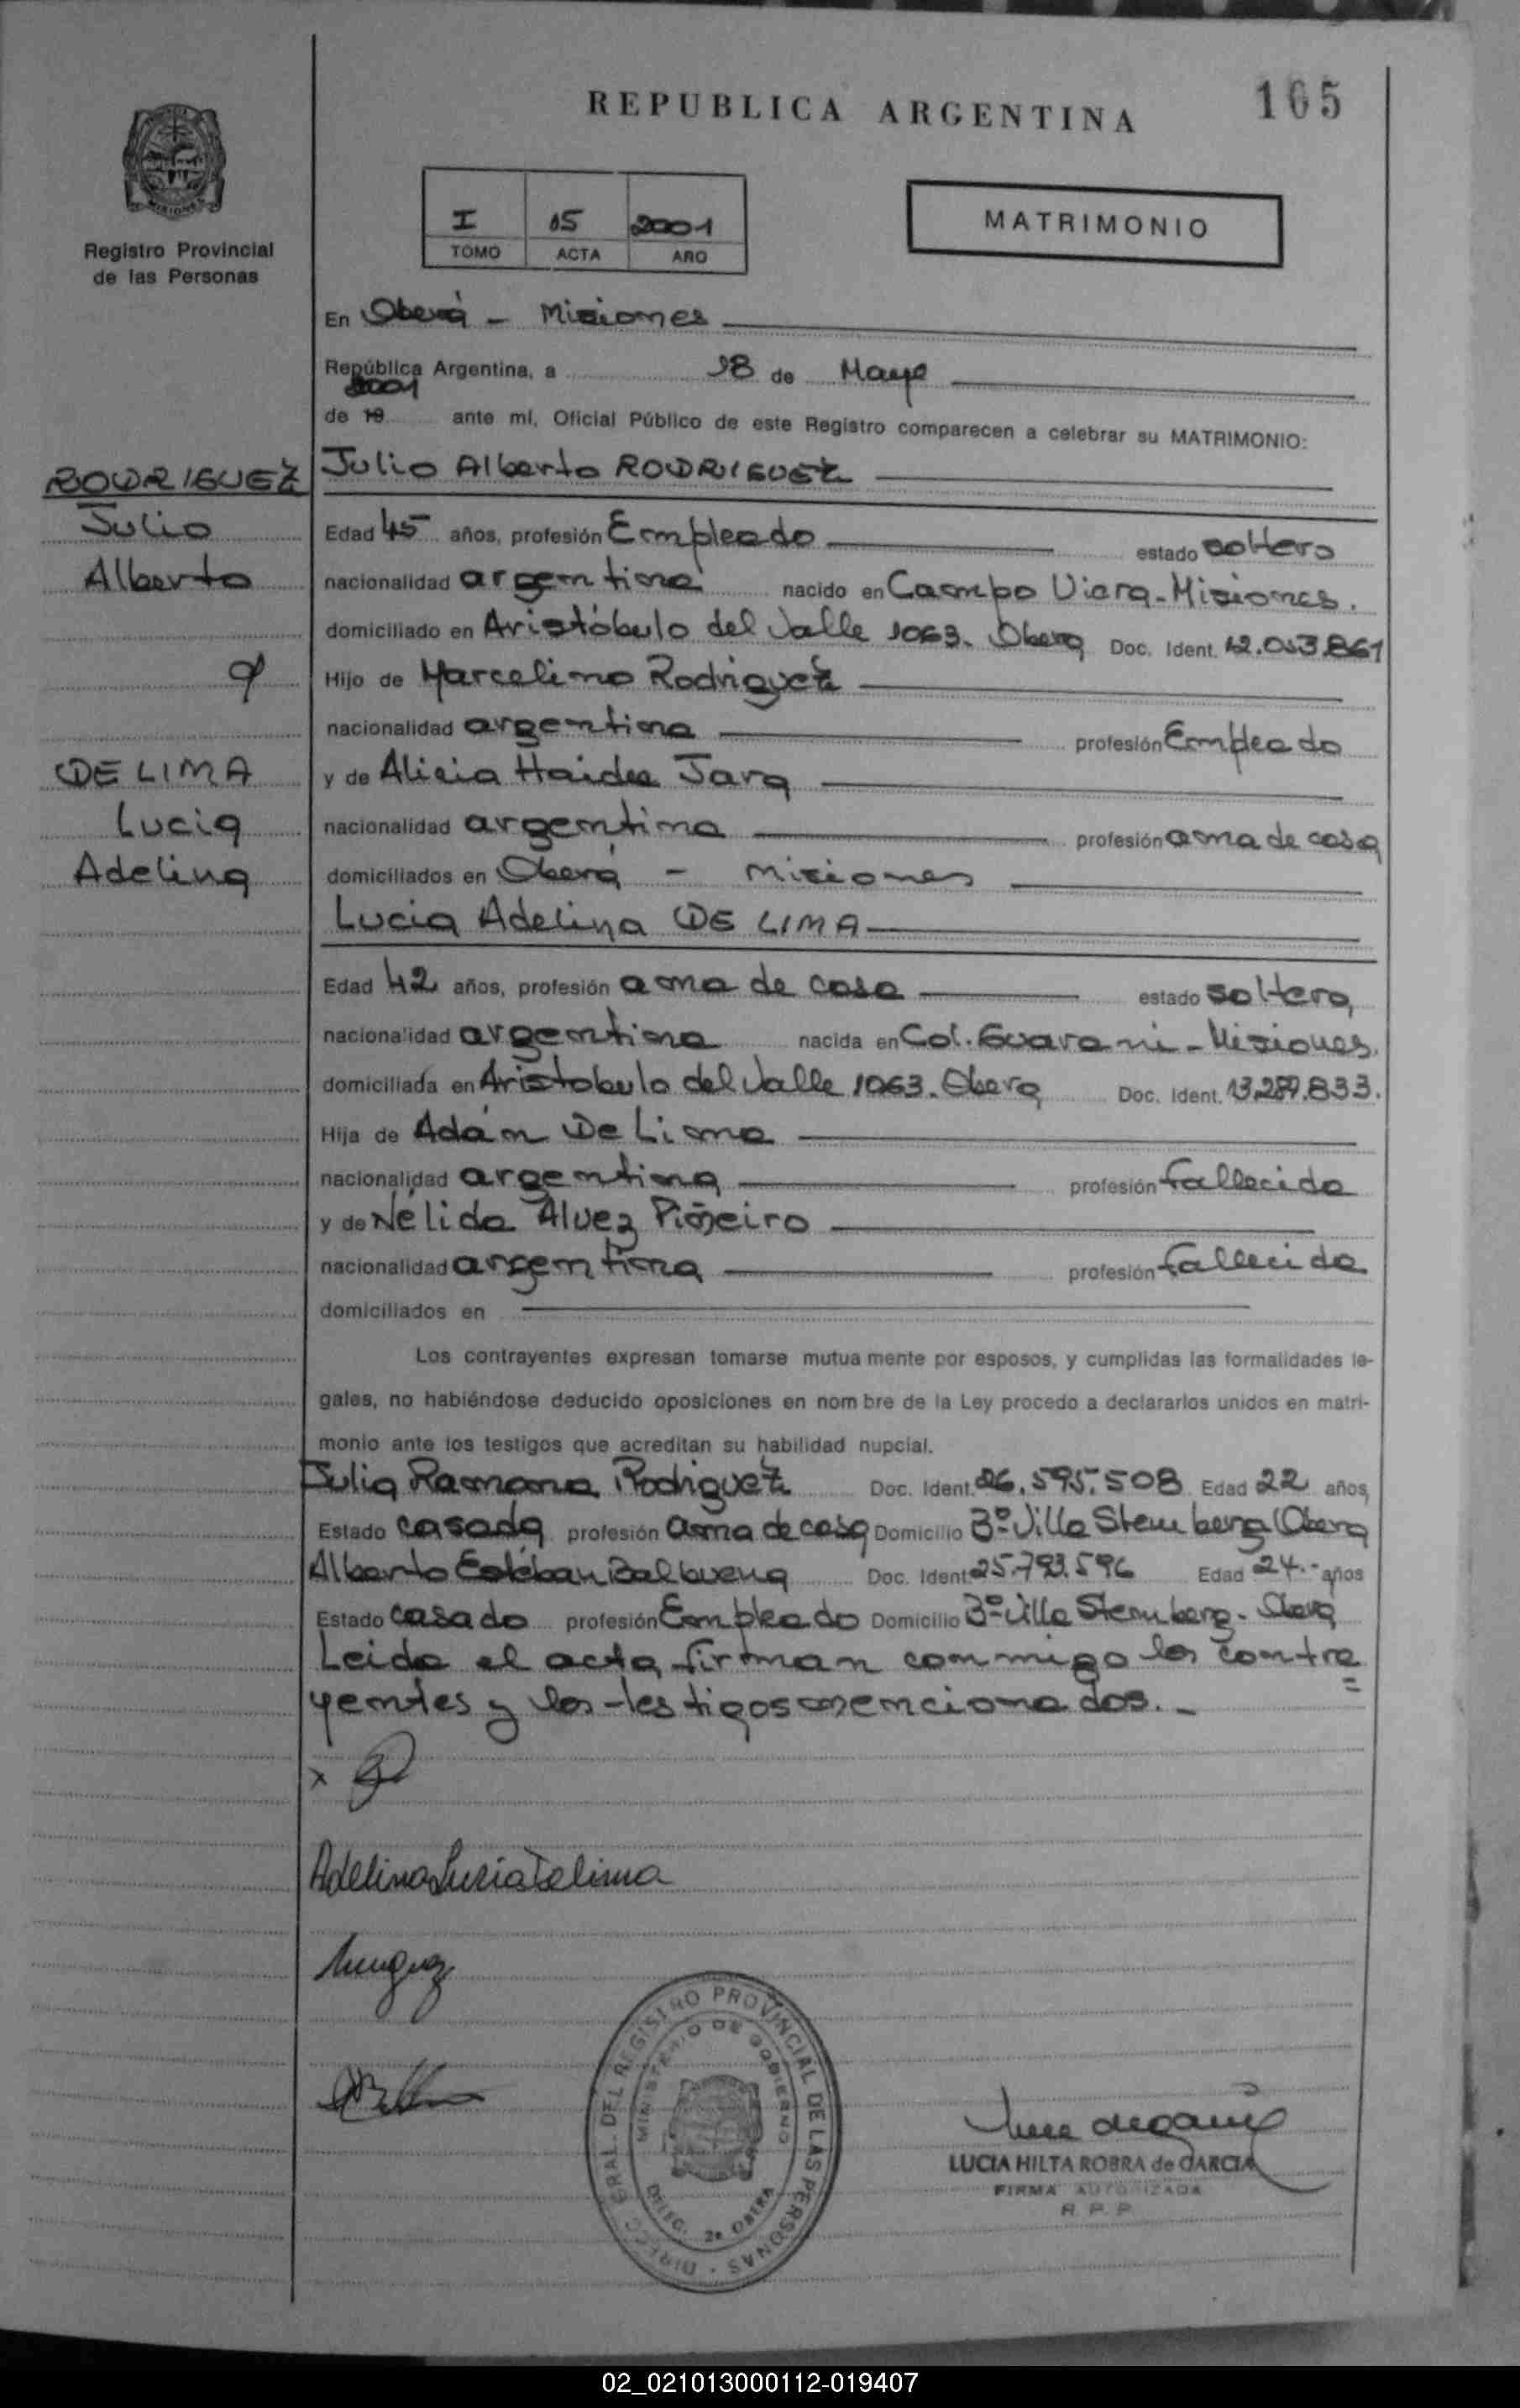 REPUBLICA ARGENTINA
165
MISIONES
Registro Provincial
de las Personas
I 15 2001
TOMO ACTA AÑO
MATRIMONIO
En Oberá - Misiones
República Argentina, a 18 de Mayo
2001
de 19 ante mí, Oficial Público de este Registro comparecen a celebrar su MATRIMONIO:
RODRIGUEZ
Julio
Alberto
y
DE LIMA
Lucia
Adelina
Julio Alberto RODRIGUEZ
Edad 45 años, profesión Empleado estado soltero
nacionalidad argentina nacido en Campo Viera-Misiones.
domiciliado en Aristóbulo del Valle 1063. Oberá Doc. Ident. 12.053.861
Hijo de Marcelino Rodriguez
nacionalidad argentina profesión Empleado
y de Alicia Haidee Jara
nacionalidad argentina profesión ama de casa
domiciliados en Oberá - Misiones
Lucia Adelina DE LIMA
Edad 42 años, profesión ama de casa estado soltera
nacionalidad argentina nacida en Col. Guarani - Misiones.
domiciliada en Aristobulo del Valle 1063. Oberá Doc. Ident. 13.289.833.
Hija de Adán De Lima
nacionalidad argentina profesión fallecido
y de Nélida Alvez Piñeiro
nacionalidad argentina profesión fallecida
domiciliados en
Los contrayentes expresan tomarse mutua mente por esposos, y cumplidas las formalidades le-
gales, no habiéndose deducido oposiciones en nom bre de la Ley procedo a declararlos unidos en matri-
monio ante los testigos que acreditan su habilidad nupcial.
Julia Ramona Rodriguez Doc. Ident. 26.595.508 Edad 22 años,
Estado casada profesión ama de casa Domicilio 3º Villa Stemberg Oberá
Alberto Estéban Balbuena Doc. Ident. 25.793.596 Edad 24.- años
Estado casado profesión Empleado Domicilio 3º Villa Stemberg. Oberá
Leida el acta, firman conmigo los contra=
yentes y los testigos mencionados.-
x
Adelina Lucia Delima
DIREC. GRAL. DEL REGISTRO PROVINCIAL DE LAS PERSONAS
MINISTERIO DE GOBIERNO
DELEG. 2a OBERA
LUCIA HILTA ROBRA de GARCIA
FIRMA AUTORIZADA
R. P. P.
02_021013000112-019407